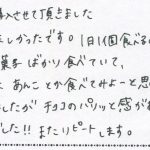 導入させて頂きました
しかったです。1日1個食べる
菓子ばかり食べていて、
あんことか食べてみよーと思
したがチョコのパリッと感が
でした!!またリピートします。